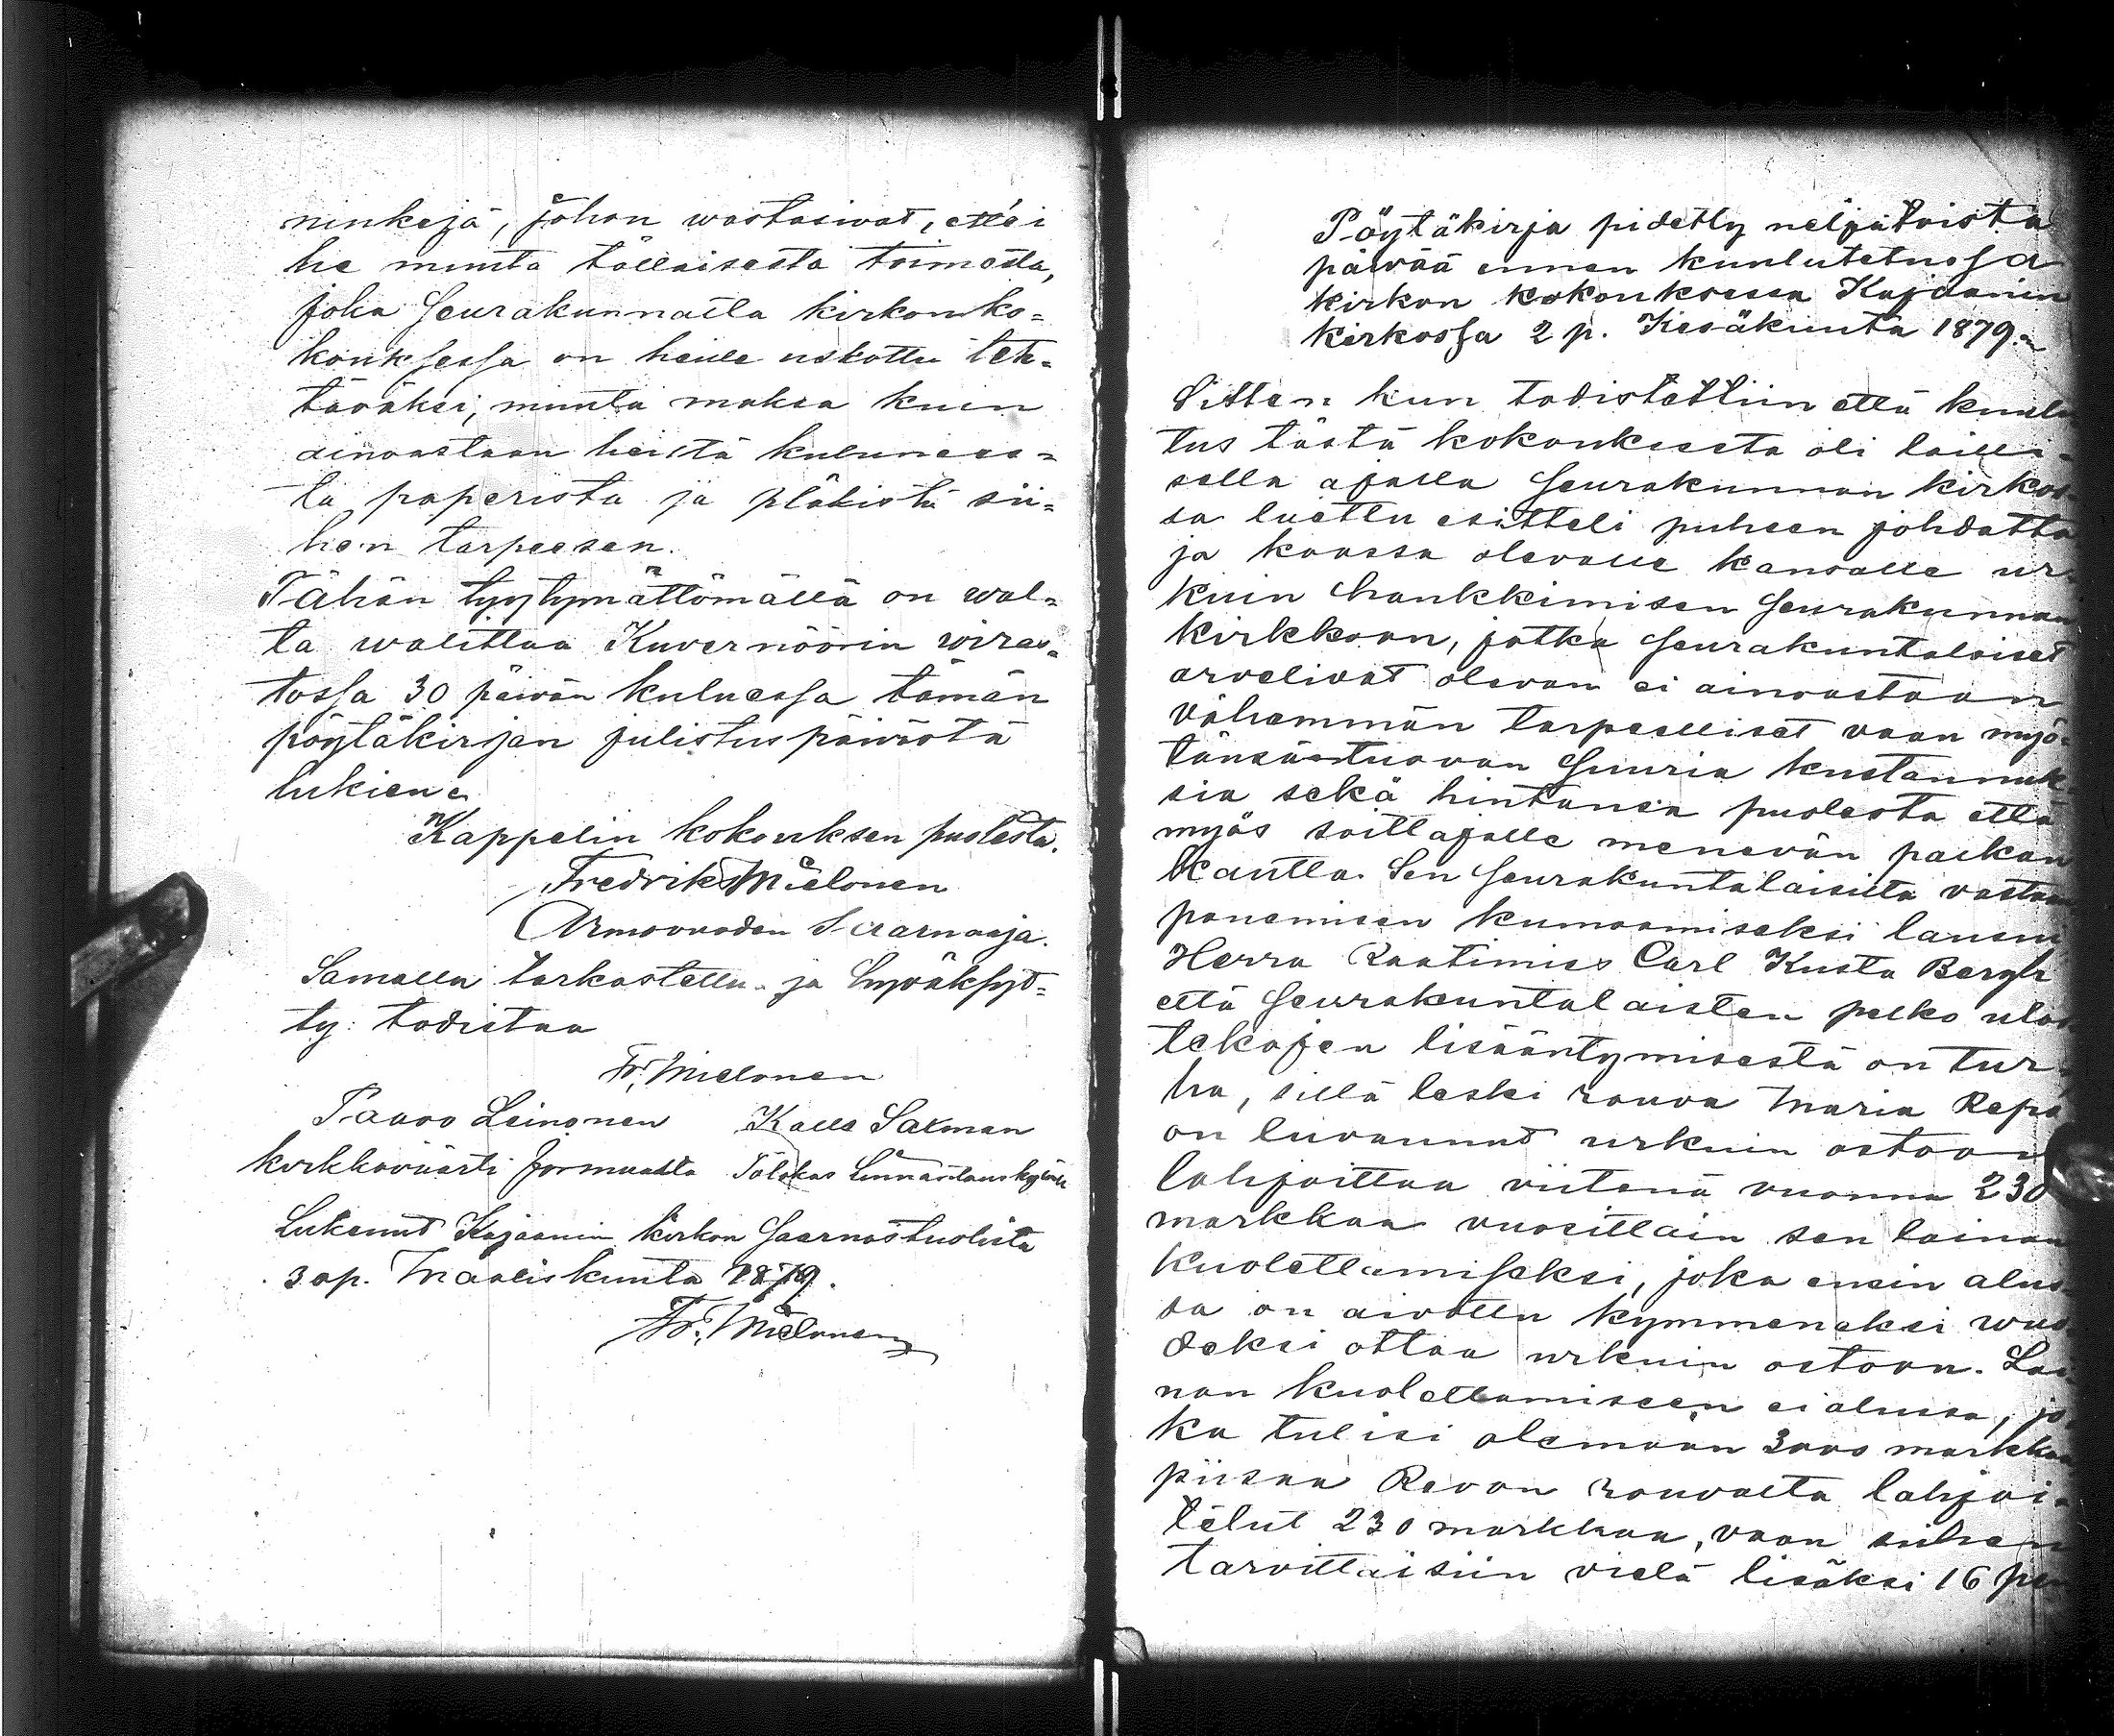 ninkejä, johon wastasivat, ettei
he muuta tällaisesta toimesta,
joka Seurakunnalla kirkonko=
kouksessa on heille uskottu teh=
täväksi, muuta maksa kuin
ainoastaan heistä kulunees=
ta paperista ja pläkistä sii=
hen tarpeesen.
Tähän tyytymättömällä on wal=
ta walittaa Kuvernöörin wiras=
tossa 30 päivän kuluessa tämän
pöytäkirjan julistuspäivästä
lukien.
Kappelin kokouksen puolesta.
Fredrik Mielonen
Armovuoden Saarnaaja.
Samalla tarkastettu ja hyväksyt=
ty: todistaa
Fr. Mielonen
Paavo Leinonen Kalle Salman
kirkkoväärti Jormuasta Talokas Linnantauskylästä
Lukenut Kajaanin kirkon Saarnastuolista
30 p. Maaliskuuta 1879.
Fr. Mielonen
Pöytäkirja pidetty neljätoista
päivää ennen kuulutetussa
kirkon kokouksessa Kajaanin
kirkossa 2 p. Kesäkuuta 1879.
Sitten kun todistettiin että kuulu
tus tästä kokouksesta oli lailli-
sella ajalla Seurakunnan kirkos-
sa luettu esitteli puheen johdatta
ja koossa olevalle kansalle ur-
kuin hankkimisen Seurakunnan
kirkkoon, jotka Seurakuntalaiset
arvelivat olevan ei ainoastaan
vähemmän tarpeelliset vaan myö-
tänsätuovan Suuria kustannuk-
sia sekä hintansa puolesta että
myös soittajalle menevän palkan
kautta. Sen Seurakuntalaisilta vastaan
panemisen kumoamiseksi lausui
Herra Raatimies Carl Kusta Bergh
että Seurakuntalaisten pelko ulos
tekojen lisääntymisestä on tur-
ha, sillä leski rouva Maria Repo
on luvannut urkuin ostoon
lahjoittaa viitenä vuonna 230
markkaa vuosittain sen lainan
kuolettamiseksi, joka ensin alus-
sa on aivottu kymmeneksi wuo
deksi ottaa urkuin ostoon. Lai
nan kuolettamiseen ei alussa, jo-
ka tulisi olemaan 3000 markkaa
piisaa Revon rouvalta lahjoi-
tetut 230 markkaa, vaan siihen
tarvittaisiin vielä lisäksi 16 pen